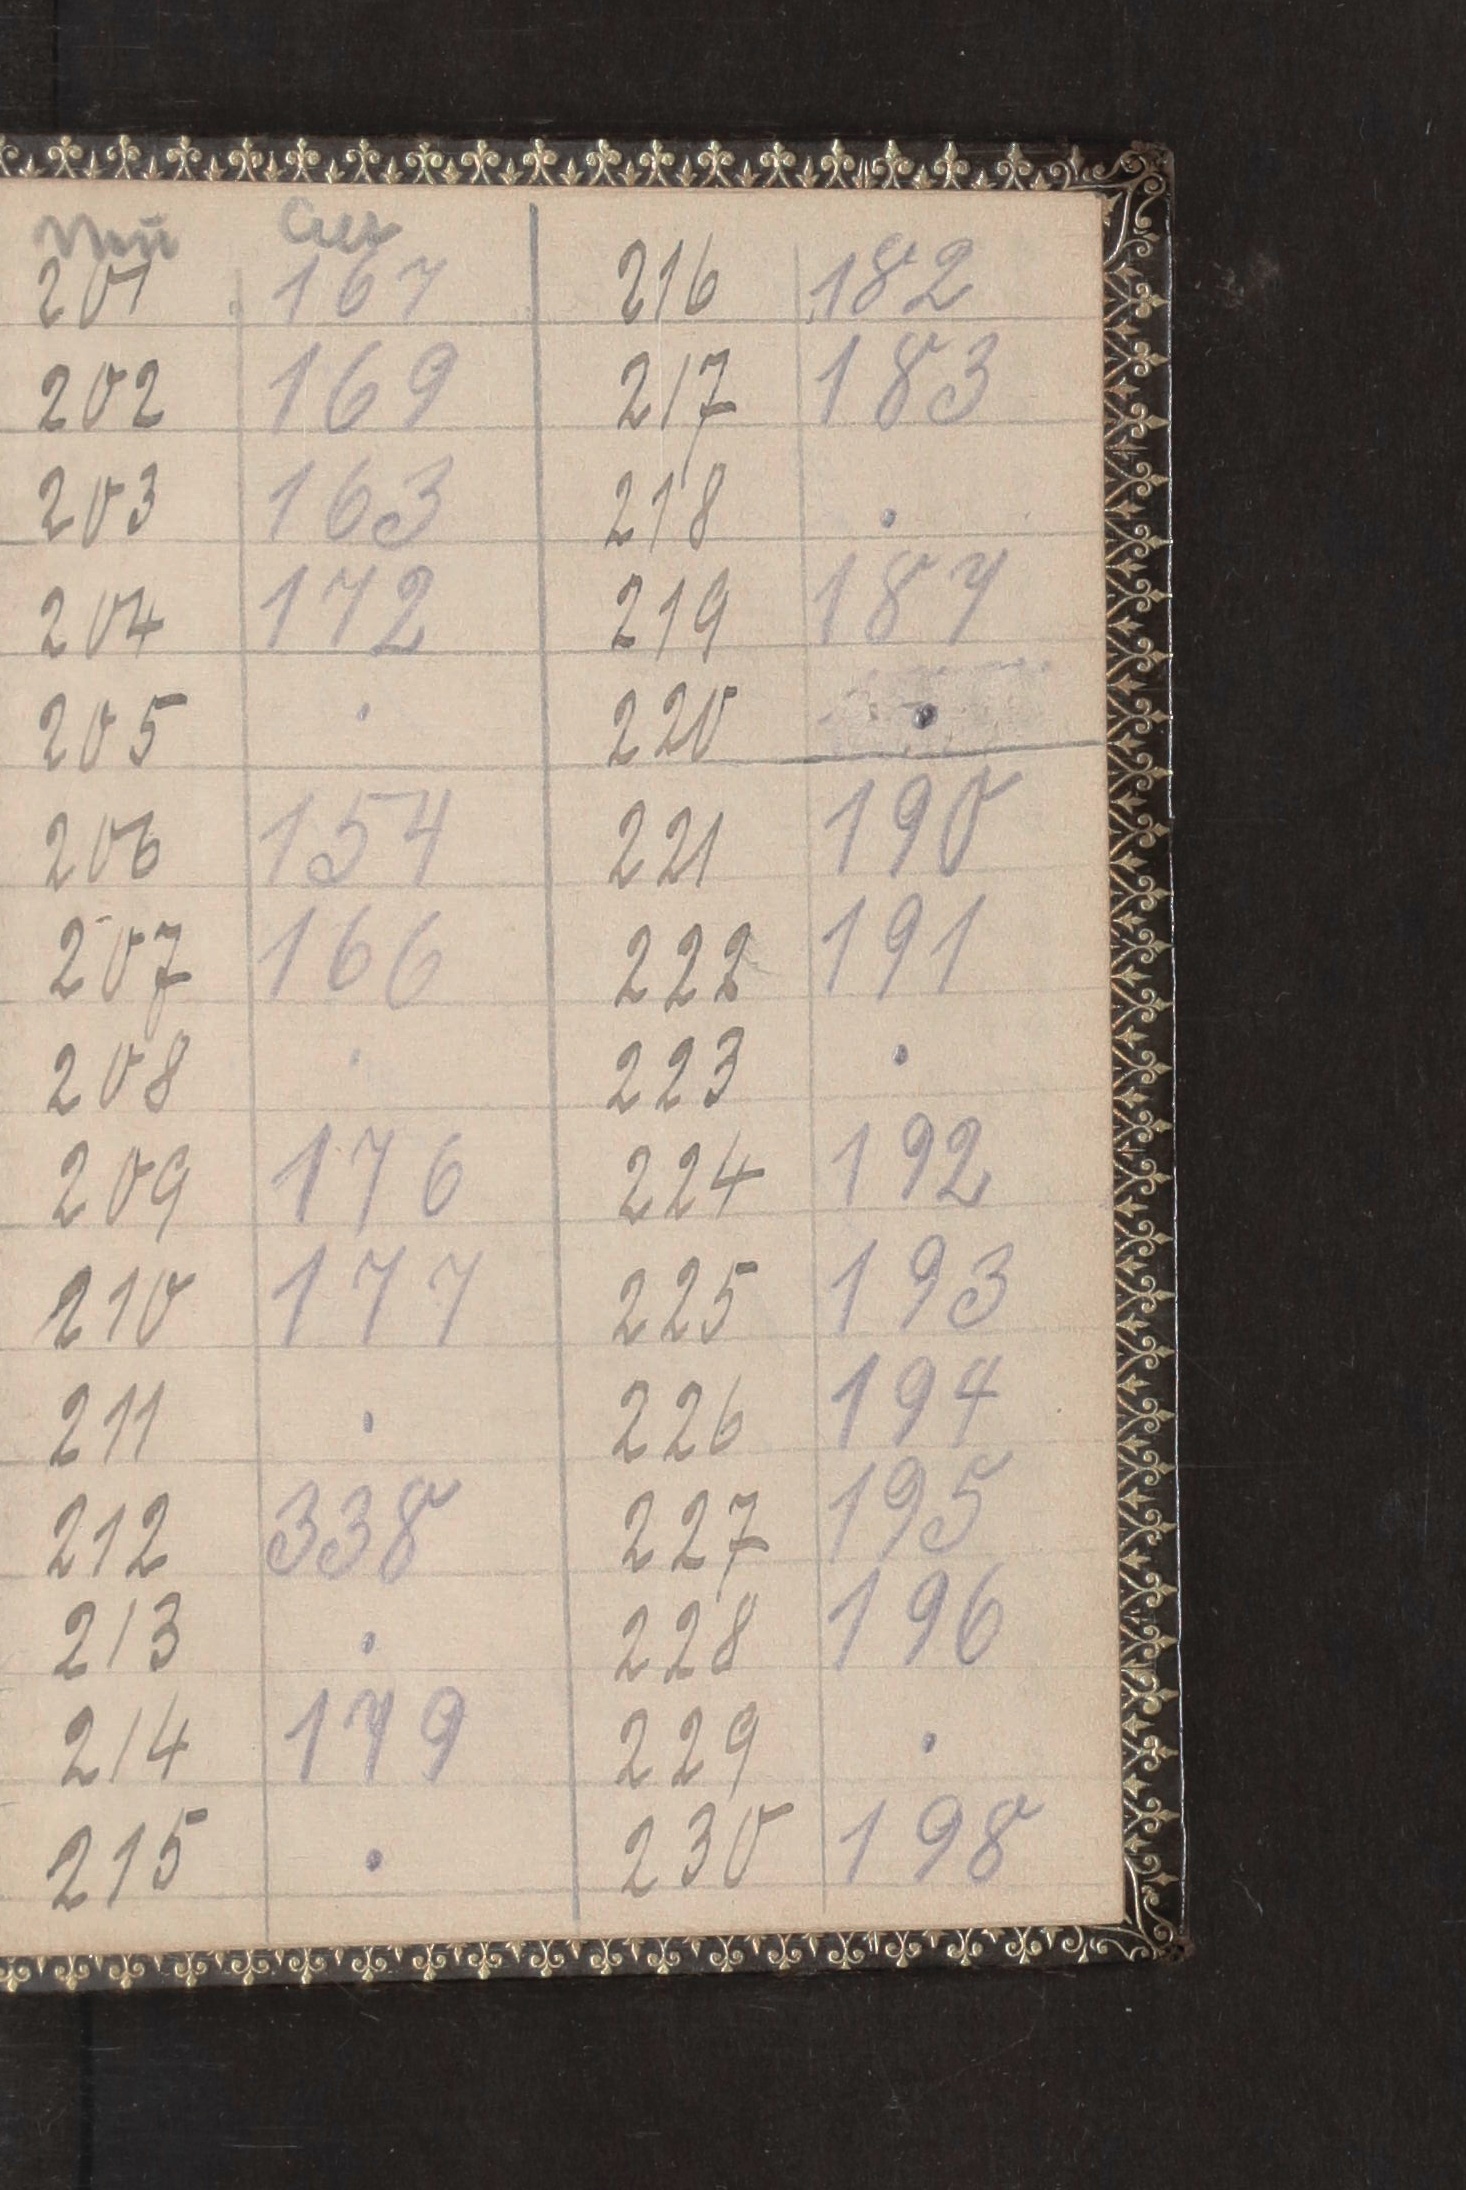 Neü
201 167 216 182
202 169 217 183
203 163 218 .
204 172 219 187
205 . 220 .
206 154 221 190
207 166 222 191
208 . 223 .
209 176 224 192
210 177 225 193
211 . 226 194
212 338 227 195
213 . 228 196
214 179 229 .
215 . 230 198